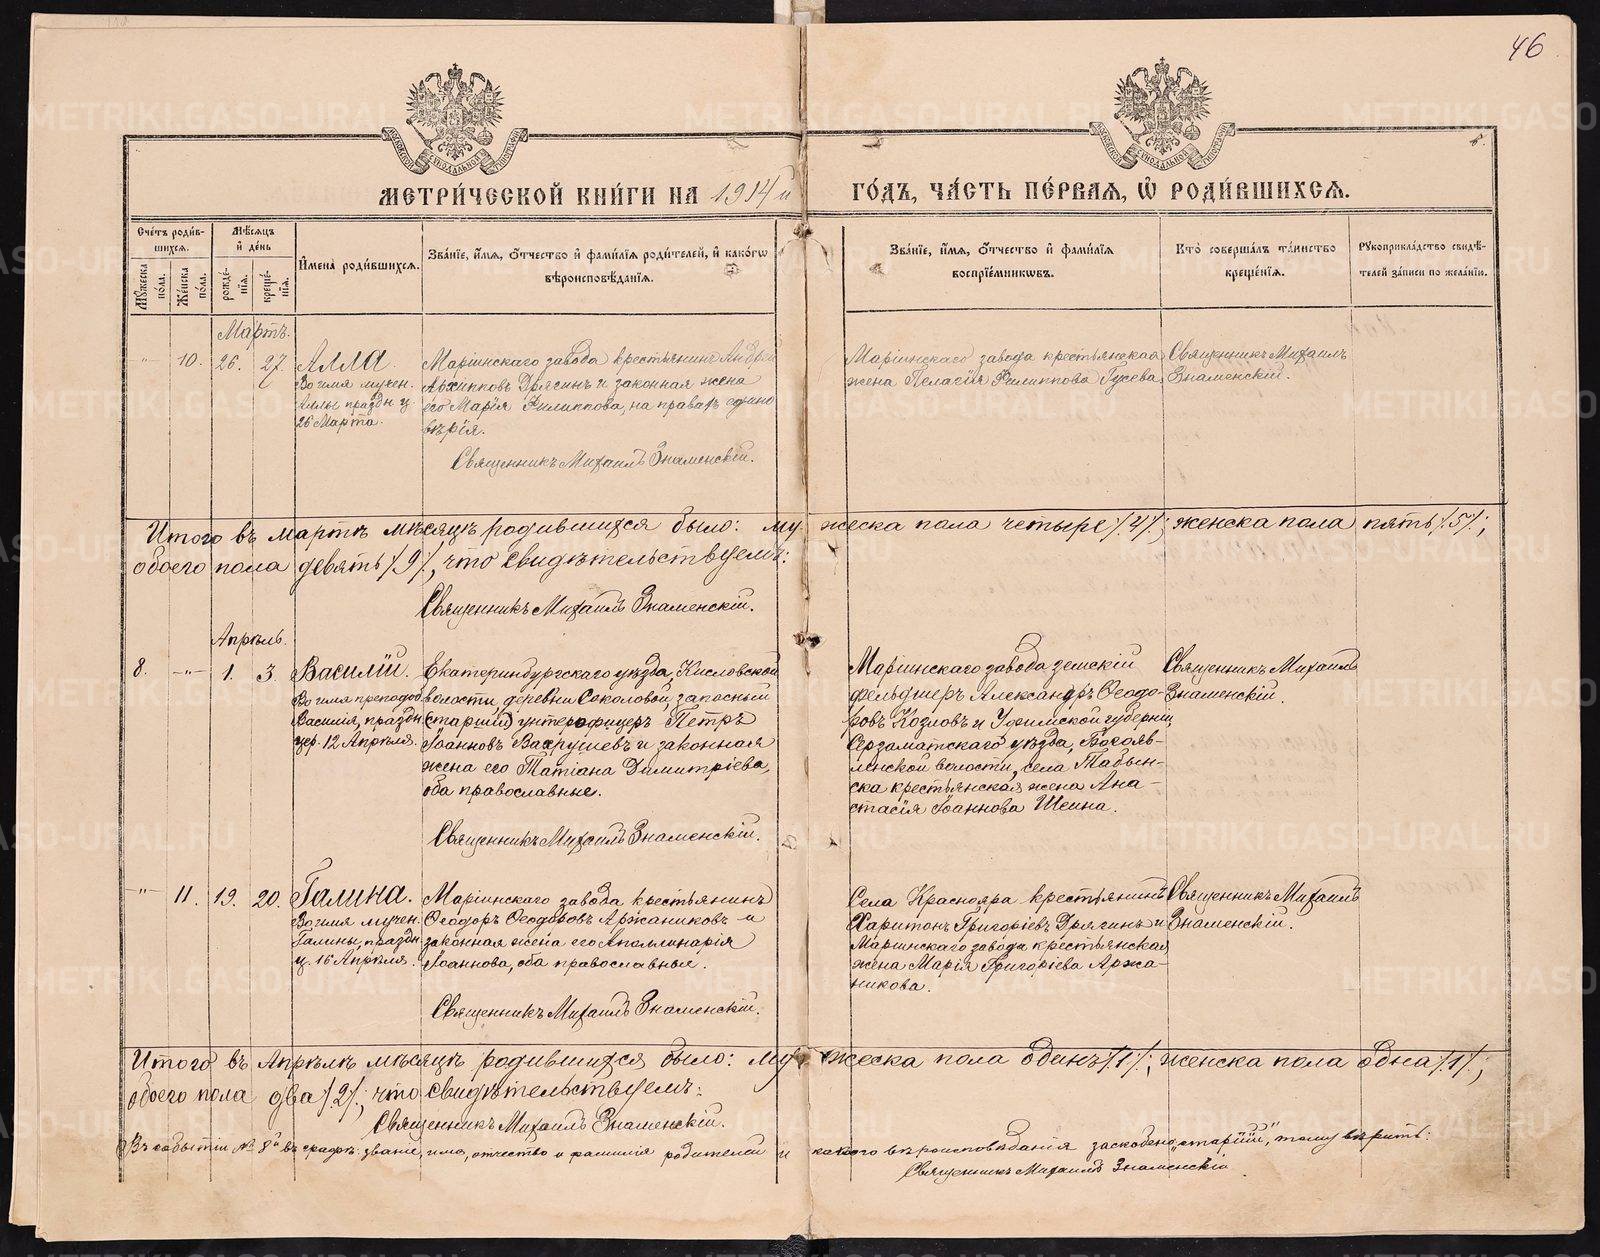 46
МЕТРИ́ЧЕСКОЙ КНИ́ГИ НА 1914й ГО́ДЪ, ЧА́СТЬ ПЕ́РВАЯ, Ѽ РОДИ́ВШИХСЯ.
Сче́тъ роди́в-
шихся.
Му́жеска по́ла.
Же́нска по́ла.
Мѣ́сяцъ и де́нь
рожде́-
нія.
креще́-
нія.
Имена̀ роди́вшихся.
Зва́ніе, и́мя, о́тчество и фами́лія роди́телей, и како́гѡ
вѣроисповѣ́данія.
Зва́ніе, и́мя, о́тчество и фами́лія
воспріе́мниковъ.
Кто̀ соверша́лъ та́инство
креще́нія.
Рукоприкла́дство свидѣ́-
телей за́писи по жела́нію.
Мартъ.
-"- 10. 26. 27. Алла.
Во имя мучен.
Аллы праздн. ц.
26 Марта.
Маріинскаго завода крестьянинъ Андрей
Архипповъ Дрягинъ и законная жена
его Марія Филиппова, на правахъ едино
вѣрія.
Священникъ Михаилъ Знаменскій.
Маріинскаго завода крестьянская
жена Пелагія Филиппова Гусева.
Священникъ Михаилъ
Знаменскій.
Итого въ мартѣ мѣсяцѣ родившихся было: му жеска пола четыре /4/; женска пола пять /5/;
обоего пола девять /9/, что свидѣтельствуемъ:
Священникъ Михаилъ Знаменскій.
Апрѣль.
8. -"- 1. 3. Василій.
Во имя преподоб
Василія, праздн.
цер. 12 Апрѣля.
Екатеринбургскаго уѣзда, Кисловской
волости, деревни Соколовой, запасный
(старшій) унтерофицеръ Петръ
Іоанновъ Вахрушевъ и законная
жена его Татіана Димитріева,
оба православные.
Священникъ Михаилъ Знаменскій.
Маріинскаго завода земскій
фельдшеръ Александръ Ѳеодо-
ровъ Козловъ и Уфимской губерніи,
Стерлитамакскаго уѣзда, Богояв-
ленской волости, села Табын-
ска крестьянская жена Ана-
стасія Іоаннова Шеина.
Священникъ Михаилъ
Знаменскій.
-"- 11. 19. 20. Галина.
Во имя мучен.
Галины, праздн.
ц. 16 Апрѣля.
Маріинскаго завода крестьянинъ
Ѳеодоръ Ѳеодоровъ Аржаниковъ и
законная жена его Аполлинарія
Іоаннова, оба православные.
Священникъ Михаилъ Знаменскій.
Села Краснояра крестьянинъ
Харитонъ Григоріевъ Дрягинъ и
Маріинскаго завода крестьянская
жена Марія Григоріева Аржа-
никова.
Священникъ Михаилъ
Знаменскій.
Итого въ Апрѣлѣ мѣсяцѣ родившихся было: му жеска пола одинъ /1/; женска пола одна /1/;
обоего пола два /2/; что свидѣтельствуемъ:
Священникъ Михаилъ Знаменскій.
Въ событіи № 8й въ графѣ: званіе, имя, отчество и фамилія родителей и какого вѣроисповѣданія заскоблено „старшій", тому вѣрить:
Священникъ Михаилъ Знаменскій.
METRIKI.GASO-URAL.RU